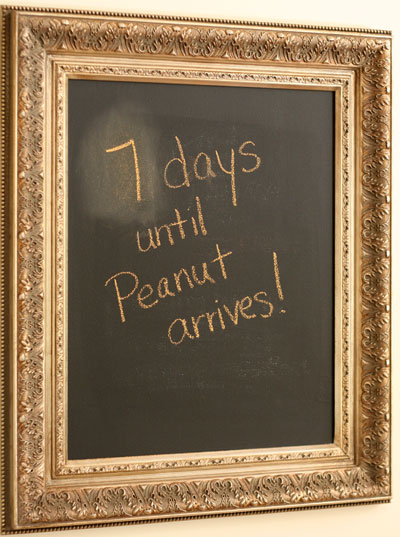 7 days
until
Peanut
arrives!